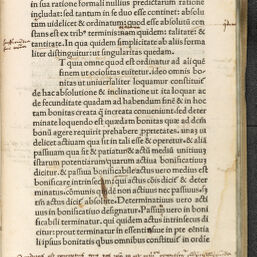 in sua ratione formali nullius predictarum ratione
includat: sed tantum in suo esse continet: absolu
tum uidelicet & ordinatum: quod esse absolutū con
stans est ex trib⁹ terminis: nam quidem: talitate: &
tantitate. In qua quidem simplicitate ab aliis forma
liter distinguitur: ut singularitas quedam.
T quia omne quod est ordinatur ad ali qué
finem ut ociositas euitetur, ideo omnis bo
nitas ut uniuersaliter loquamur constituif
de hac absolutione & inclinatione ut ita loquar ac
de fecunditate quadam ad habendum finē & in hoc
tam bonitas creata q̃ increata conueniunt: sed deter
minate loquendo est quadam bonitas quæ ad de sui
bonū agere requirit prehabere pprietates. unaq̃ ut
delicet actiuam qua sit in tali esse & operetur, & aliā
passiuam qua fit & patiatur & actū mediū unitiuū
istarum potentiarum quarum actiua bonificatiuum
dicitur. & passiua bonificabile actus uero medius est
bonificare intrinsece qui actus cōis dicif & deter
minatus. cōmunis quidē non actiuus nec passiuus, sed
tm̄ actus dicif absolute. Determinatiuus uero actiu
uus in bonificatiuo designatur. Passiuus uero in boni
ficabili terminatur. qui quidem actus intrinsecus di
citur: prout terminatur in essentiis siue in pte eēntia
li ipsius bonitatis q̃bus omnibus constituif in ordie